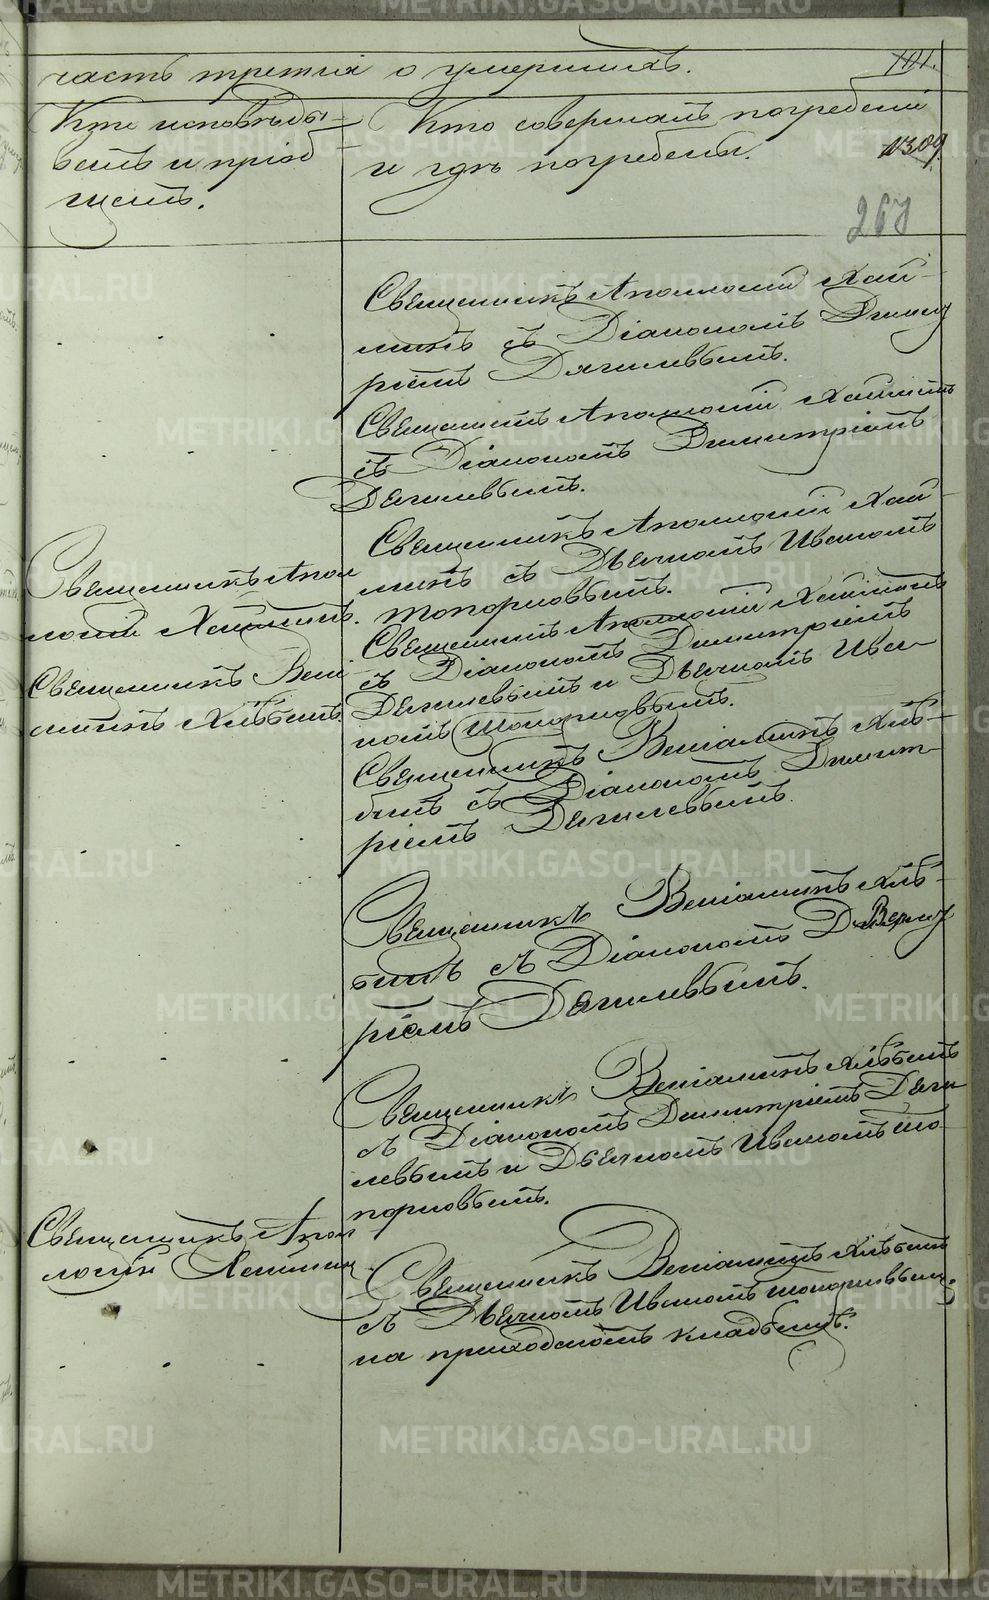 часть третія о умершихъ.
101.
Кто исповѣды-
валъ и пріоб
щалъ.
Кто совершалъ погребеніе
и гдѣ погребены.
1309
267
Священникъ Аполлоній Хай-
минъ съ Діакономъ Димит
ріемъ Дягилевымъ.
Священникъ Аполлоній Хайминъ
съ Діакономъ Димитріемъ
Дягилевымъ.
Священникъ Аполлоній Хай-
минъ съ Дьячкомъ Иваномъ
Топорковымъ.
Священникъ Апол
лоній Хайминъ.
Священникъ Аполлоній Хайминъ
съ Діакономъ Димитріемъ
Дягилевымъ и Дьячкомъ Ива-
номъ Топорковымъ.
Священникъ Вені
аминъ Хлѣбинъ.
Священникъ Веніаминъ Хлѣ-
бинъ съ Діакономъ Димит-
ріемъ Дягилевымъ.
Священникъ Веніаминъ Хлѣ-
бинъ съ Діакономъ
ріемъ Дягилевымъ.
Священникъ Веніаминъ Хлѣбинъ
съ Діакономъ Димитріемъ Дяги
левымъ и Дьячкомъ Иваномъ То
порковымъ.
Священникъ Апол
лоній Хайминъ
Священникъ Веніаминъ Хлѣбинъ
съ Дьячкомъ Иваномъ Топорковымъ
на приходскомъ кладбищѣ.
METRIKI.GASO-URAL.RU